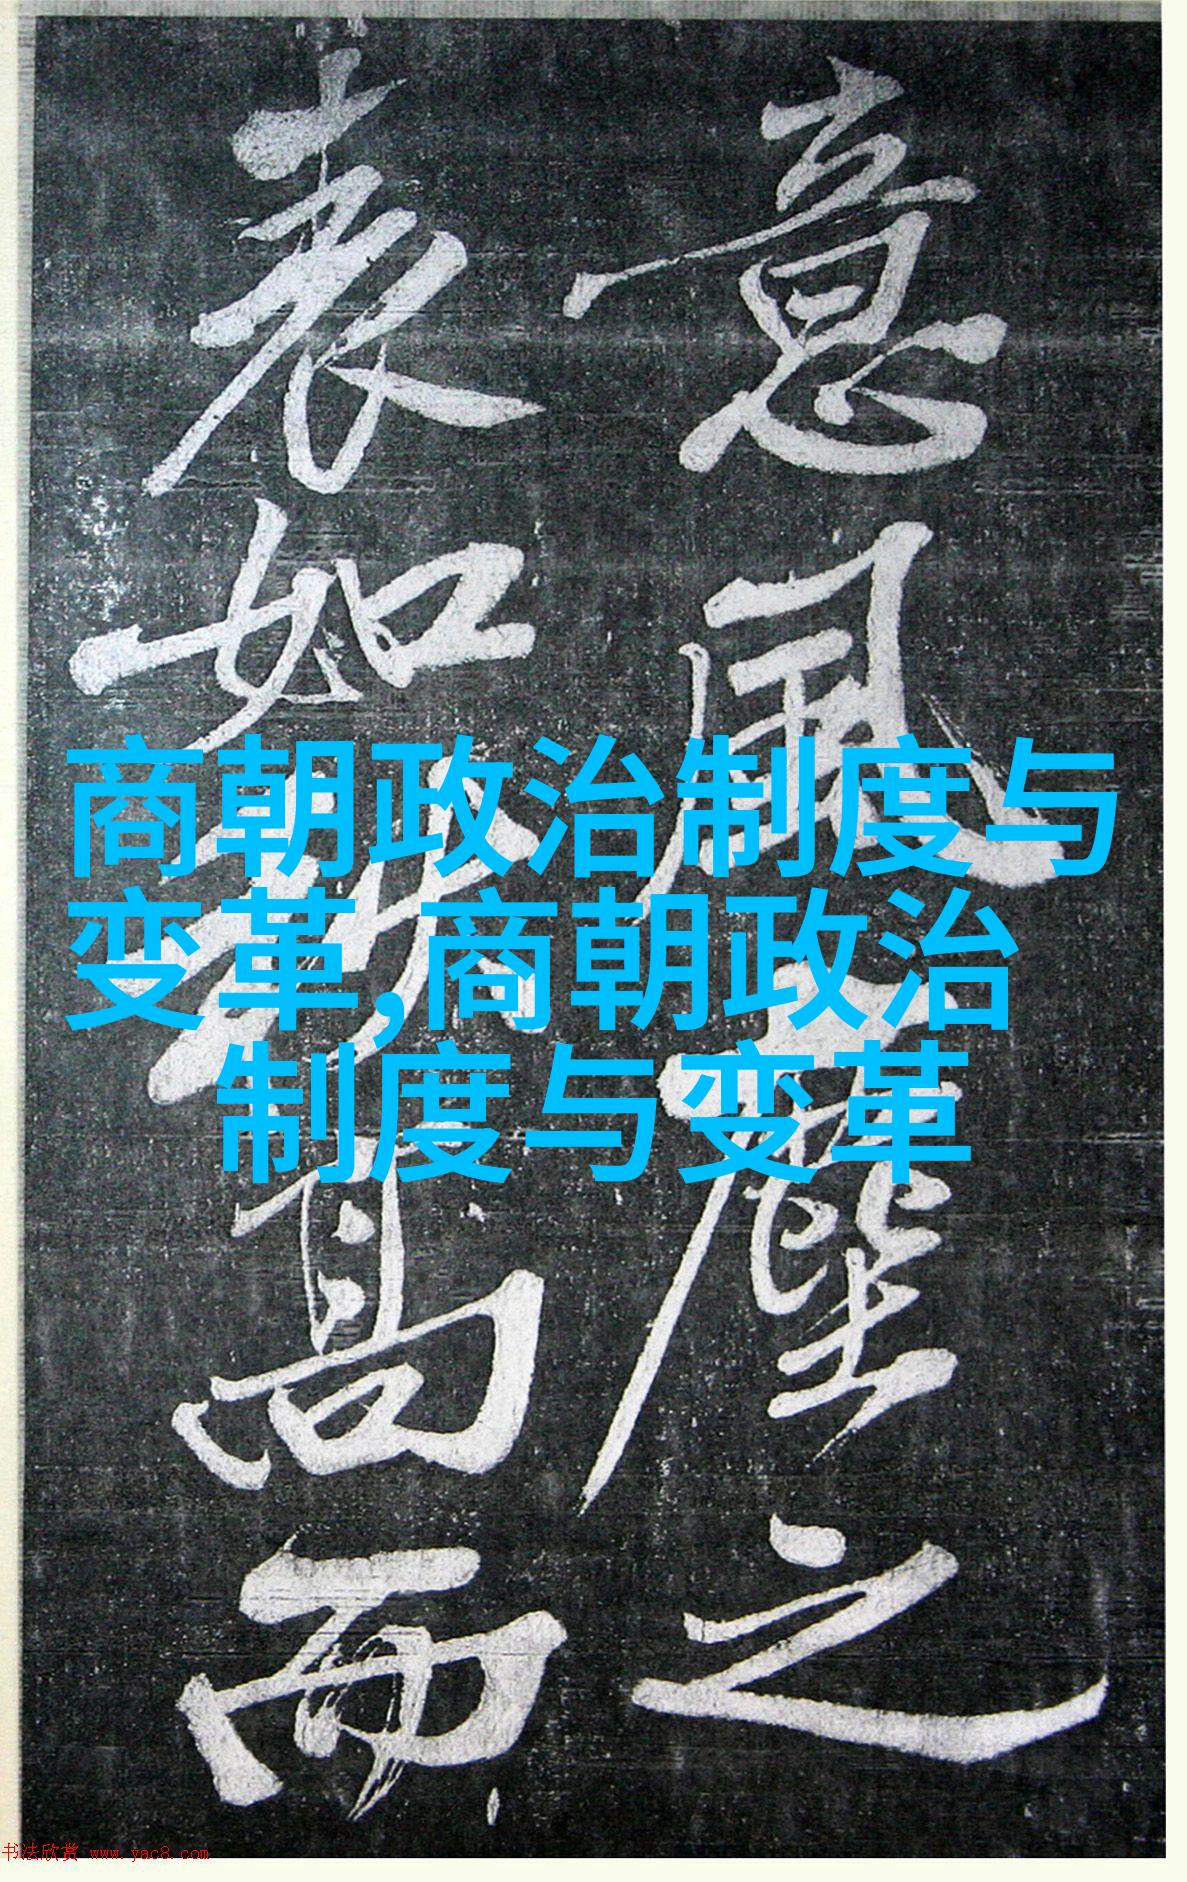 商朝政治制度与
变革,商朝政治
制度与变革
意風塵之
表如秋高而
书法欣赏 www.yac8.com